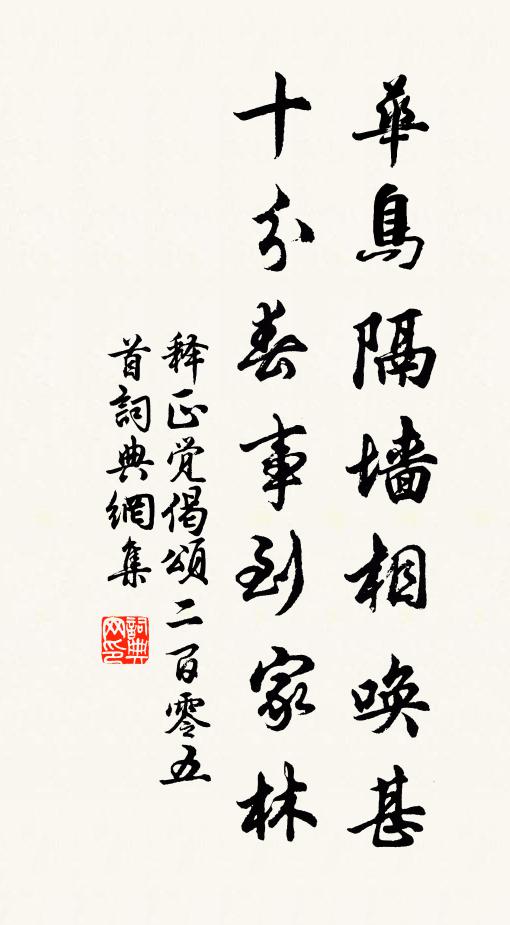 華鳥隔墻相唤甚
十分春事到家林
释正觉偈頌二百零五
首詞典網集
詞典网印